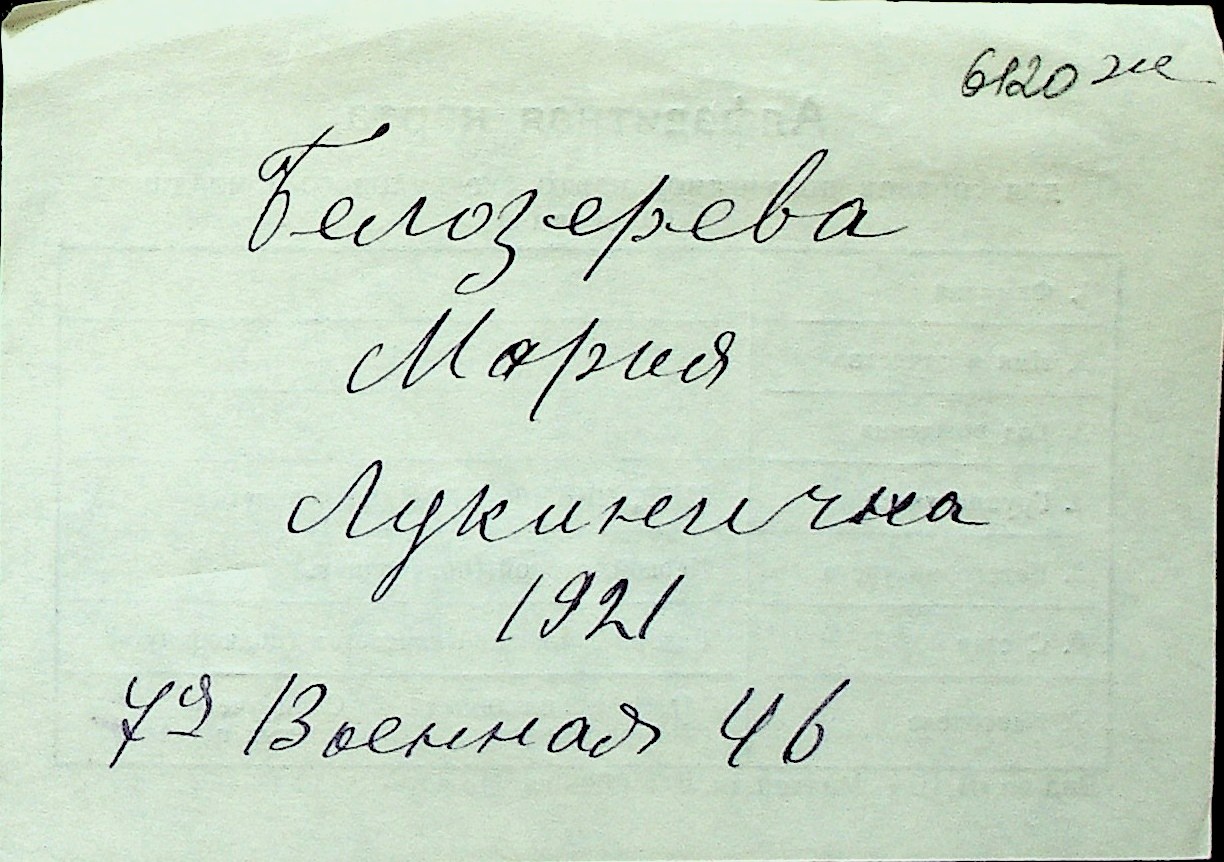 6120 ж
Белозерева
Мария
Лукинична
1921
7я Военная 46